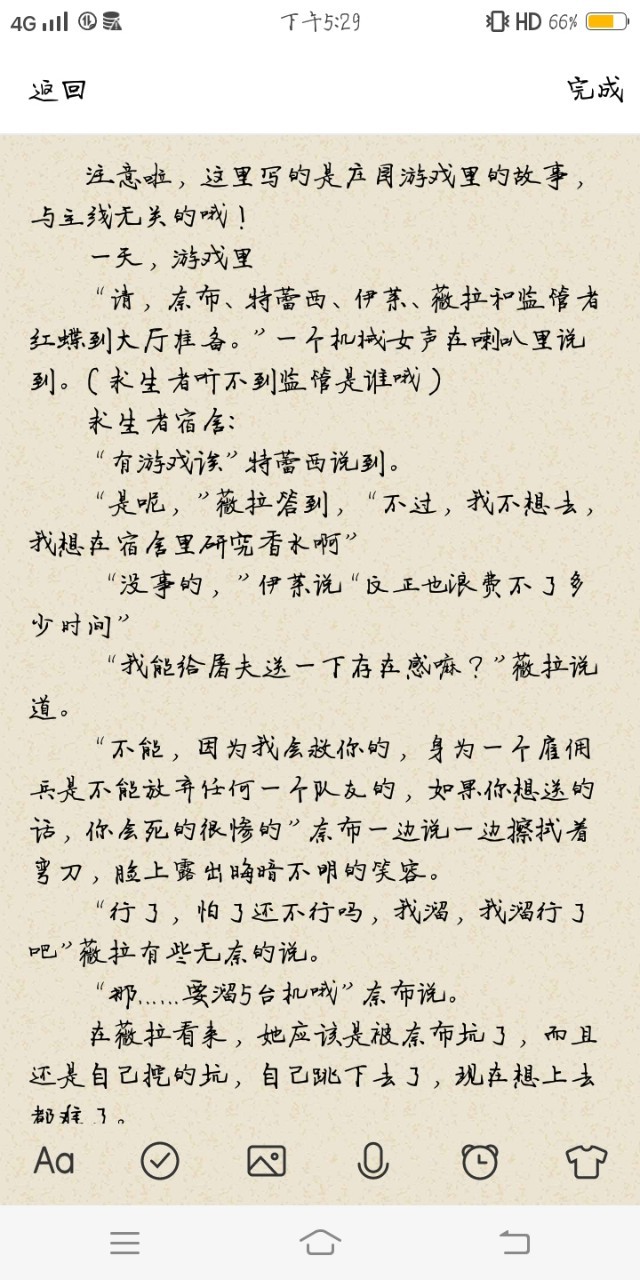 4G 下午5:29 HD 66%
返回 完成
注意啦，这里写的是庄园游戏里的故事，
与主线无关的哦！
一天，游戏里
“请，奈布、特蕾西、伊莱、薇拉和监管者
红蝶到大厅准备。”一个机械女声在喇叭里说
到。（求生者听不到监管是谁哦）
求生者宿舍：
“有游戏诶”特蕾西说到。
“是呢，”薇拉答到，“不过，我不想去，
我想在宿舍里研究香水啊”
“没事的，”伊莱说“反正也浪费不了多
少时间”
“我能给屠夫送一下存在感嘛？”薇拉说
道。
“不能，因为我会救你的，身为一个雇佣
兵是不能放弃任何一个队友的，如果你想送的
话，你会死的很惨的”奈布一边说一边擦拭着
弯刀，脸上露出晦暗不明的笑容。
“行了，怕了还不行吗，我溜，我溜行了
吧”薇拉有些无奈的说。
“那……要溜5台机哦”奈布说。
在薇拉看来，她应该是被奈布坑了，而且
还是自己挖的坑，自己跳下去了，现在想上去
都难了。
Aa